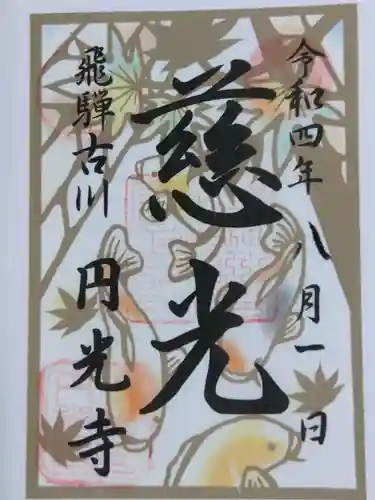 令和四年八月一日
慈光
飛騨古川
円光寺